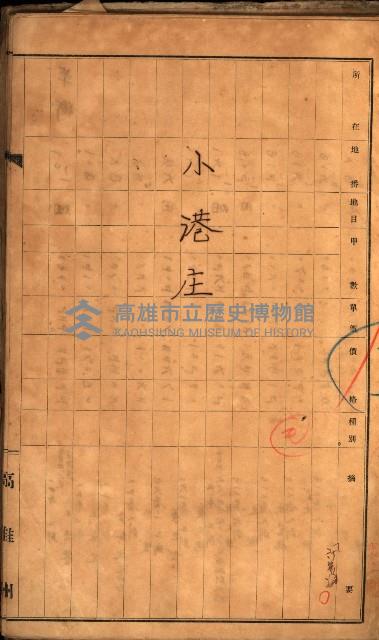 所在地
番
地目
甲數
單價
價格
種別
摘要
小港庄
高雄州
高雄市立歷史博物館
KAOHSIUNG MUSEUM OF HISTORY